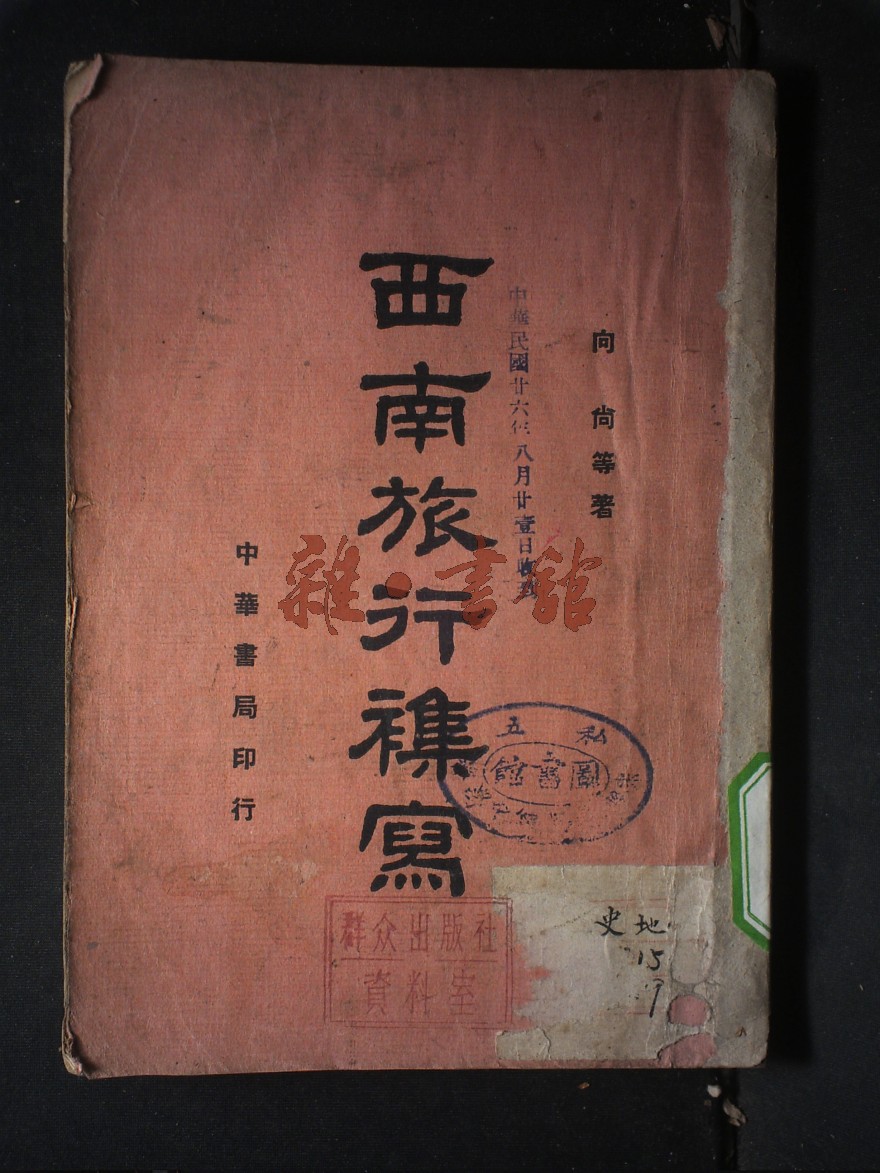 向尙等著
中華民國廿六年八月廿壹日收到
西南旅行襍寫
中華書局印行
雜·書館
私
五
圖書館
群众出版社
資料室
史地
15
9